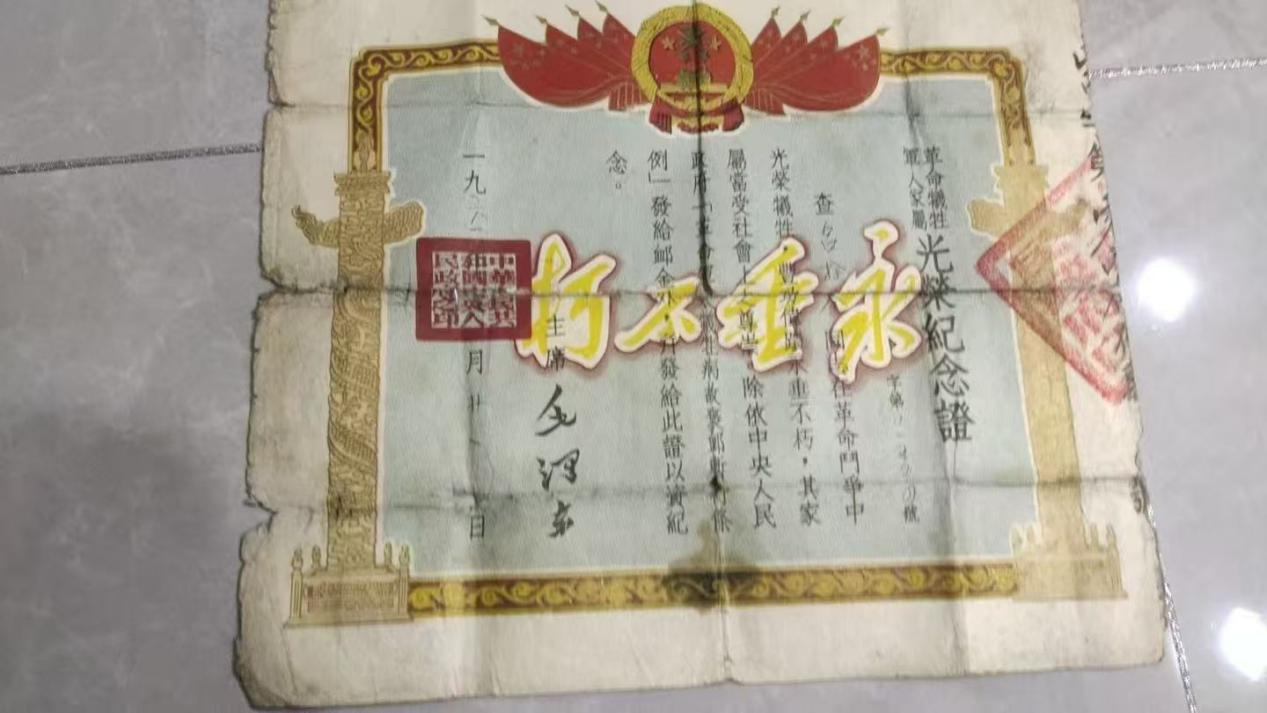 革命犧牲
軍人家屬
光榮紀念證
字第
號
查
在革命鬥爭中
光榮犧牲,豐功偉績永垂不朽,其家
屬當受社會上之尊崇。除依中央人民
政府「革命軍人犧牲病故褒卹暫行條
例」發給卹金外並發給此證以資紀
念。
永垂不朽
主席
毛澤東
一九
月
日
中華人民共
和國中央人
民政府之印